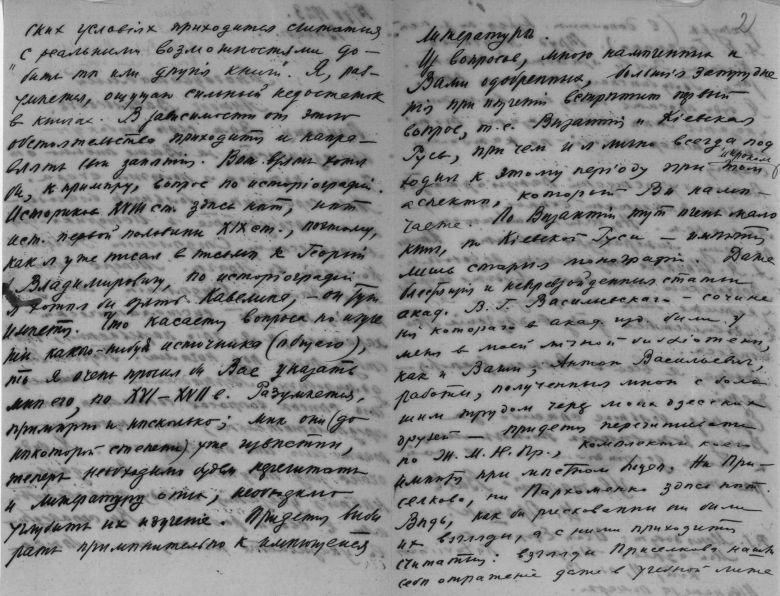 ских условіях приходится считаться
с реальными возможностями до-
быть ту или другую книгу. Я, раз-
умеется, ощущаю сильный недостаток
в книгах. В зависимости от этого
обстоятельства приходится и напра-
влять свои занятія. Вот взять хотя
бы, к примеру, вопрос по исторіографіи.
Историков XVIII ст. здесь нет, нет
ист. первой половины XIX ст., поэтому,
как я уже писал в письме к Георгію
Владимировичу, по исторіографіи
я хотел бы взять Кавелина, – он тут
имеется. Что касается вопроса по изуче-
нію какого-нибудь источника (общаго),
то я очень просил бы Вас указать
мне его, по XVI–XVII в. Разумеется,
примерно и несколько; мне они (до
некоторой степени) уже известны,
теперь необходимо будет перечитать
и литературу о них, необходимо
углубить их изученіе. Придется выби
рать применительно к имеющейся
2
литературы.
Из вопросов, мною намеченных и
Вами одобренных, больше затрудне
нія при изученіи встретит первый
вопрос, т.е. Византія и Кіевская
Русь, при чем и я лично всегда под
ходил к этому періоду при том широком
аспекте, который Вы наме-
чаете. По Византіи тут очень мало
книг, по Кіевской Руси – имеются
лишь старые монографіи. Даже
блестящія и непревзойденныя статьи
акад. В. Г. Васильевскаго – сочине
нія котораго в акад. изд. были у
меня в моей личной библіотеке,
как и Ваши, Антон Васильевич,
работы, полученныя мной с боль
шим трудом через моих одесских
друзей – придется перечитывать
по Ж. М. Н. Пр., комплекты коего
имеются при местном педвузе. Ни При-
селкова, ни Пархоменко здесь нет.
Ведь, как бы рискованны ни были
их взгляды, а с ними приходится
считаться: взгляды Приселкова нашли
себе отраженіе даже в учебной лите